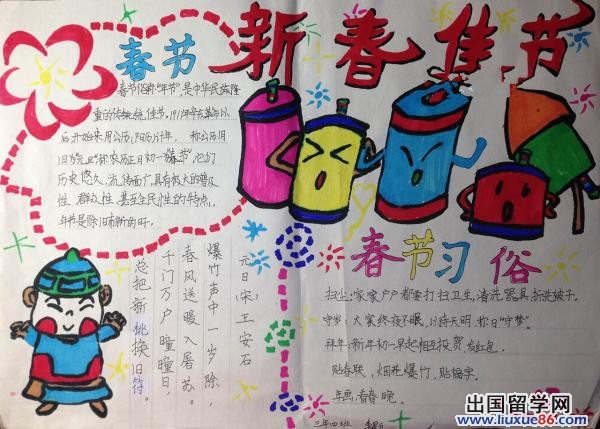 新春佳节
春节
春节俗称“年节”,是中华民族隆
重的传统佳节。
后开始采用公历(阳历)计年,称公历
旧历
历史悠久,流传面广,具有极大的普及
性,群众性,甚至全民性的特点,
年节是除旧布新的
元日(宋)王安石
爆竹声中一岁除,
春风送暖入屠苏。
千门万户瞳瞳日,
总把新桃换旧符。
春节习俗
扫尘:家家户户都要打扫卫生,清洗器具,拆洗被子。
守岁:大家终夜不眠,以待天明,称曰“守岁”。
拜年:新年初一早起相互投贺,发红包。
贴春联,烟花爆竹,贴福字。
年画,看春晚。
三年四班
出国留学网
www.liuxue86.com